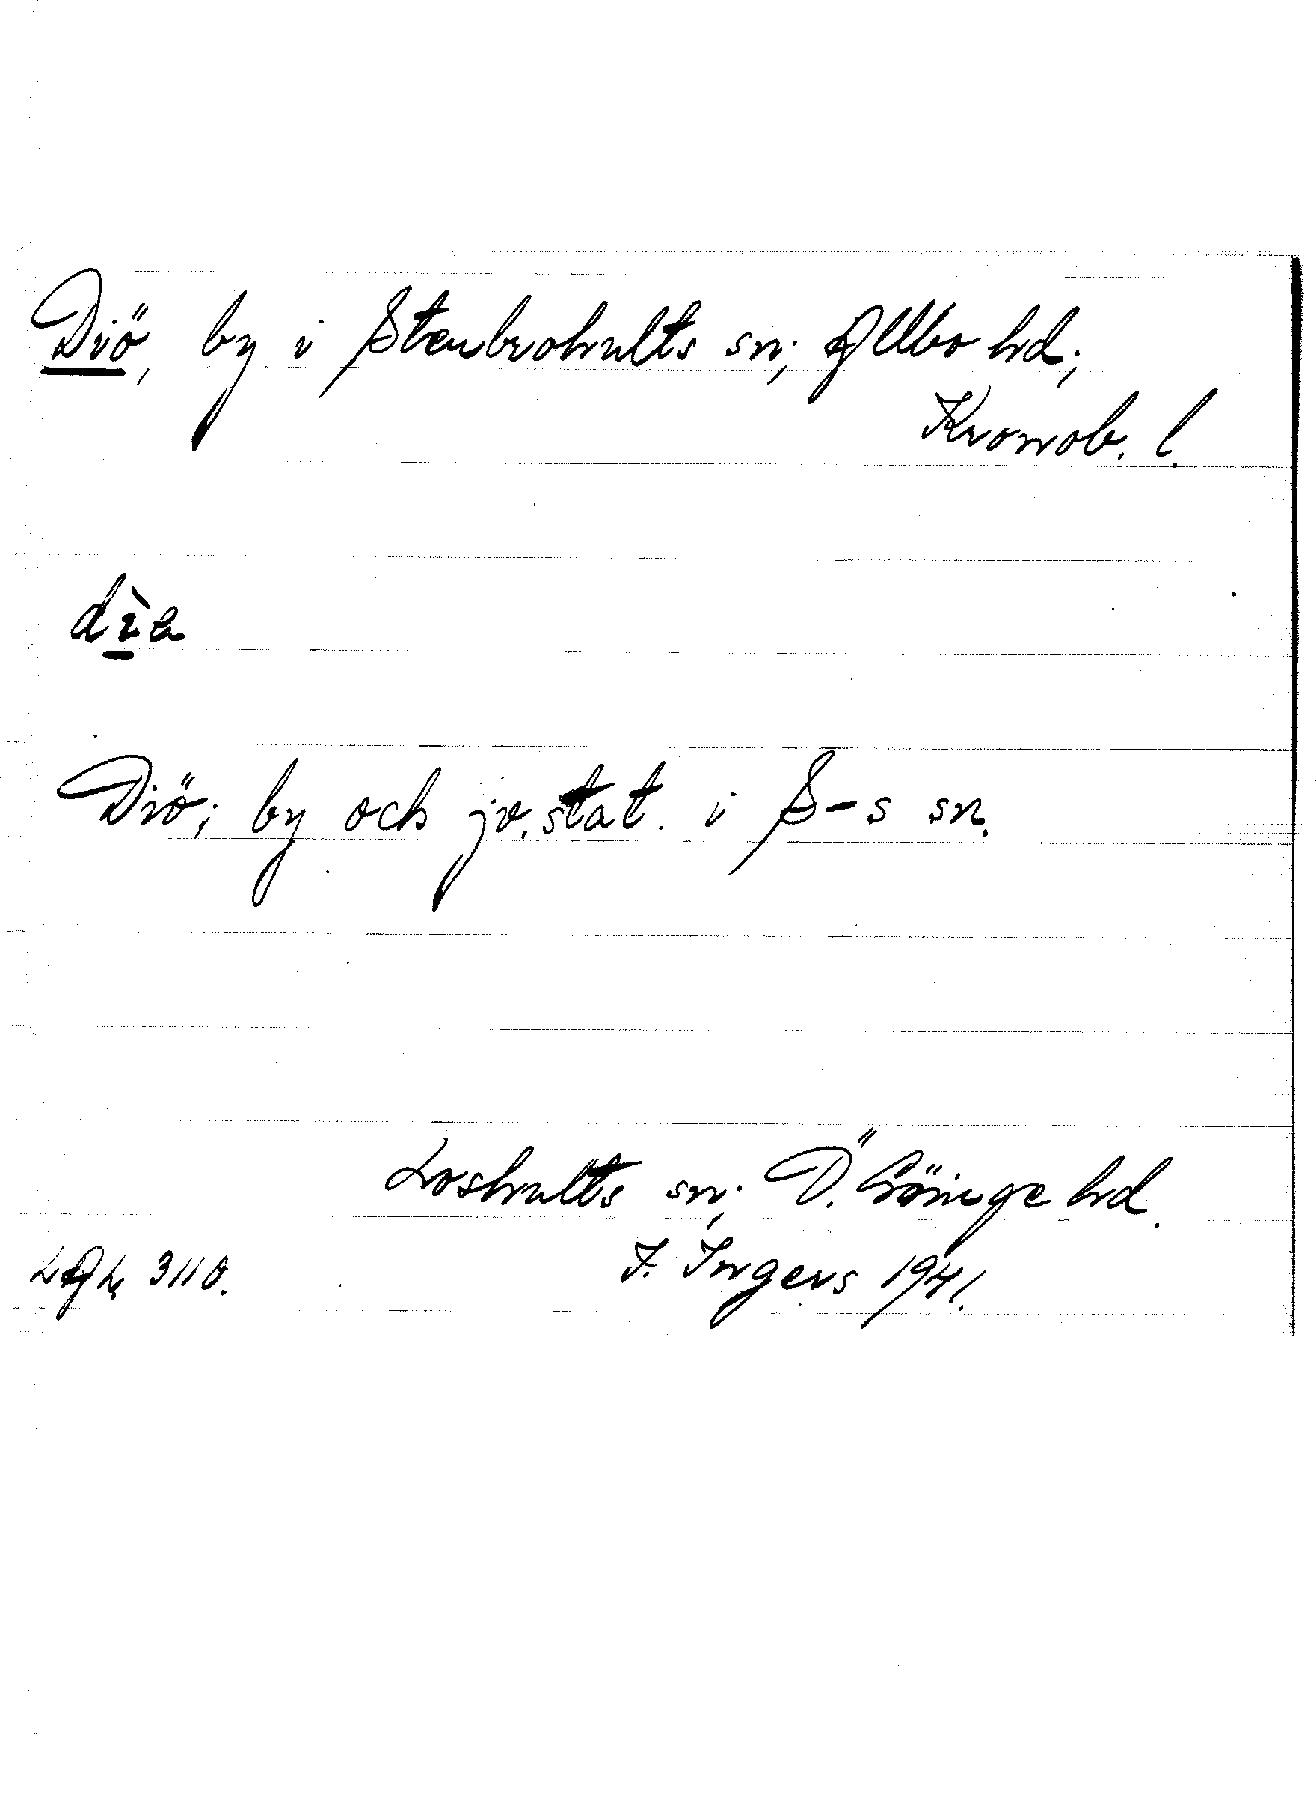 Diö, by i Stenbrohults sn; Allbo hd;
Kronob. l.
dìa
Diö; by och jv.stat. i S-s sn.
Loshults sn; Ö. Göinge hd.
LAL 3110. I. Ingers 1941.